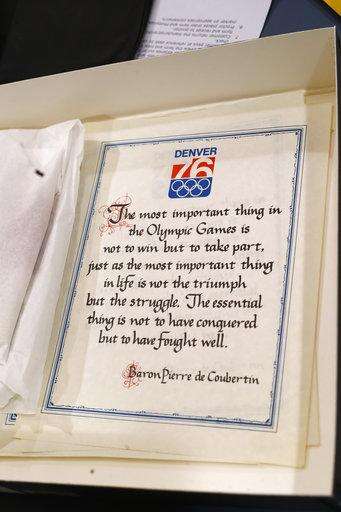 DENVER
76
The most important thing in
the Olympic Games is
not to win but to take part,
just as the most important thing
in life is not the triumph
but the struggle. The essential
thing is not to have conquered
but to have fought well.
Baron Pierre de Coubertin